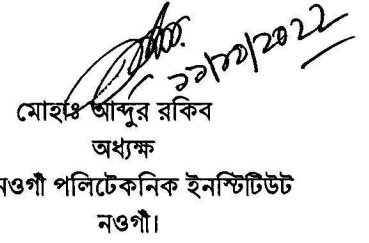 ১১/১১/২০২২
মোহাঃ আব্দুর রকিব
অধ্যক্ষ
নওগাঁ পলিটেকনিক ইনস্টিটিউট
নওগাঁ।